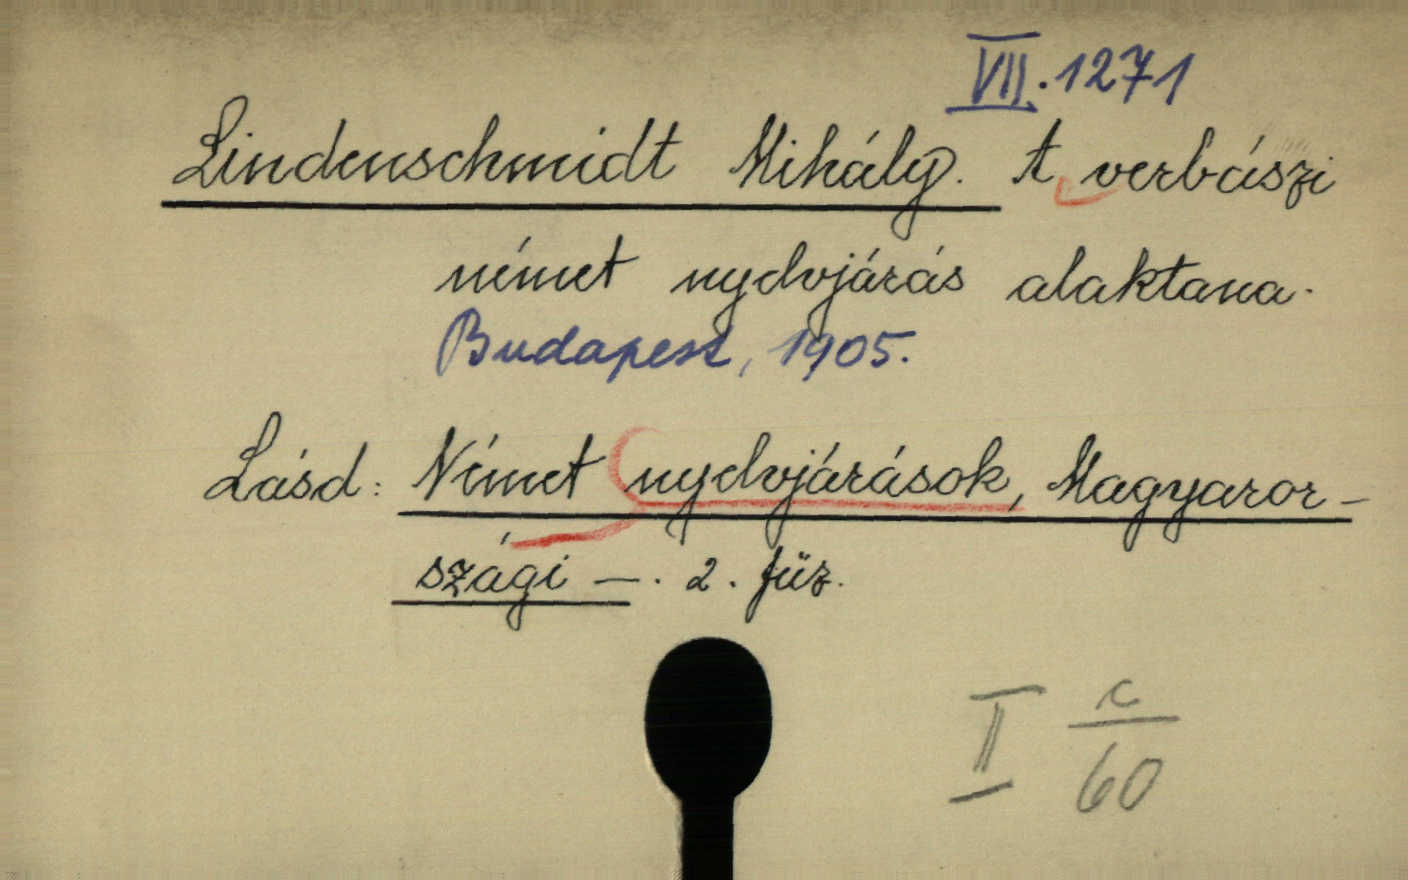 VII. 1271
Lindenschmidt Mihály. A verbászi
német nyelvjárás alaktana.
Budapest, 1905.
Lásd: Német nyelvjárások, Magyaror-
szági —. 2. füz.
II c
60